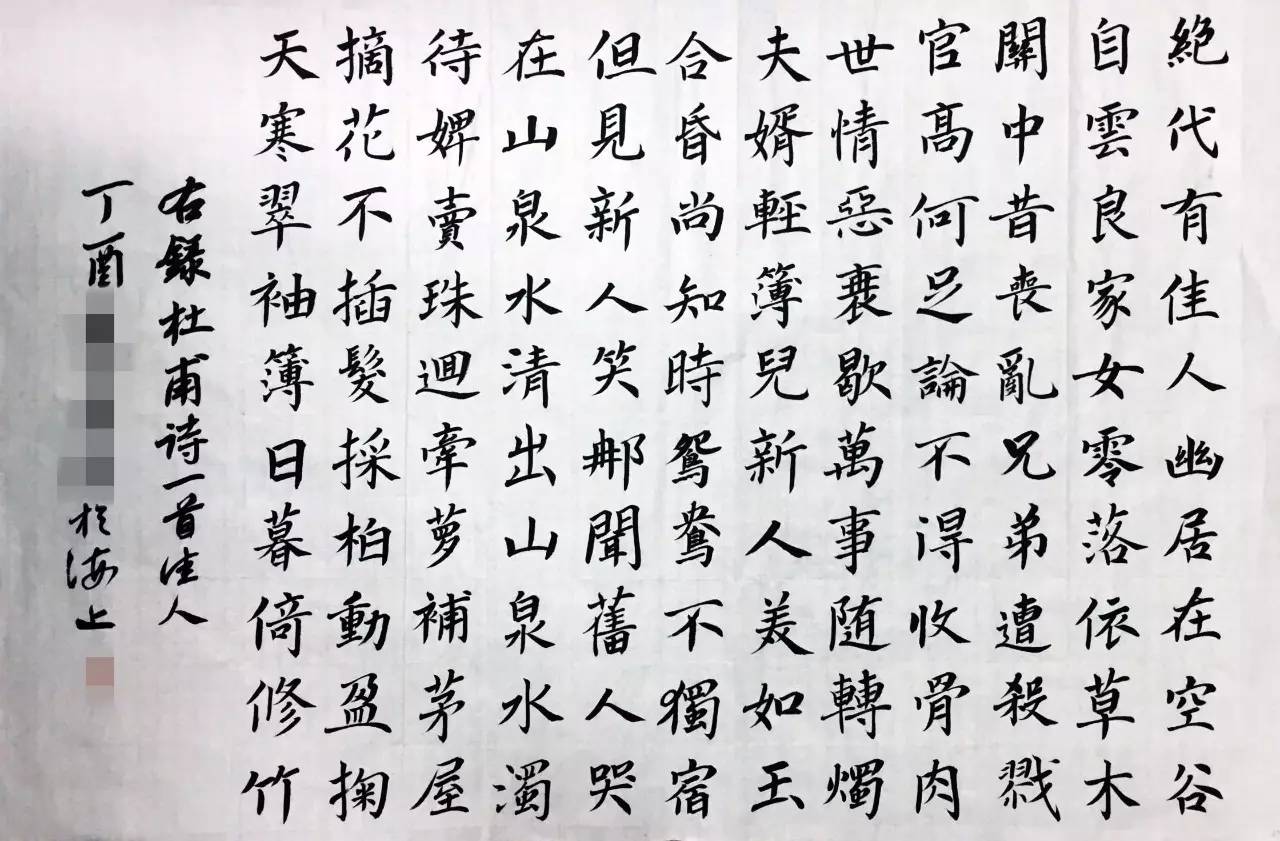 絕代有佳人幽居在空谷
自雲良家女零落依草木
關中昔喪亂兄弟遭殺戮
官高何足論不得收骨肉
世情惡衰歇萬事随轉燭
夫婿輕簿兒新人美如玉
合昏尚知時鴛鴦不獨宿
但見新人笑那聞舊人哭
在山泉水清出山泉水濁
待婢賣珠迴牽萝補茅屋
摘花不插髮採柏動盈掬
天寒翠袖簿日暮倚修竹
右録杜甫诗一首佳人
丁酉
於海上